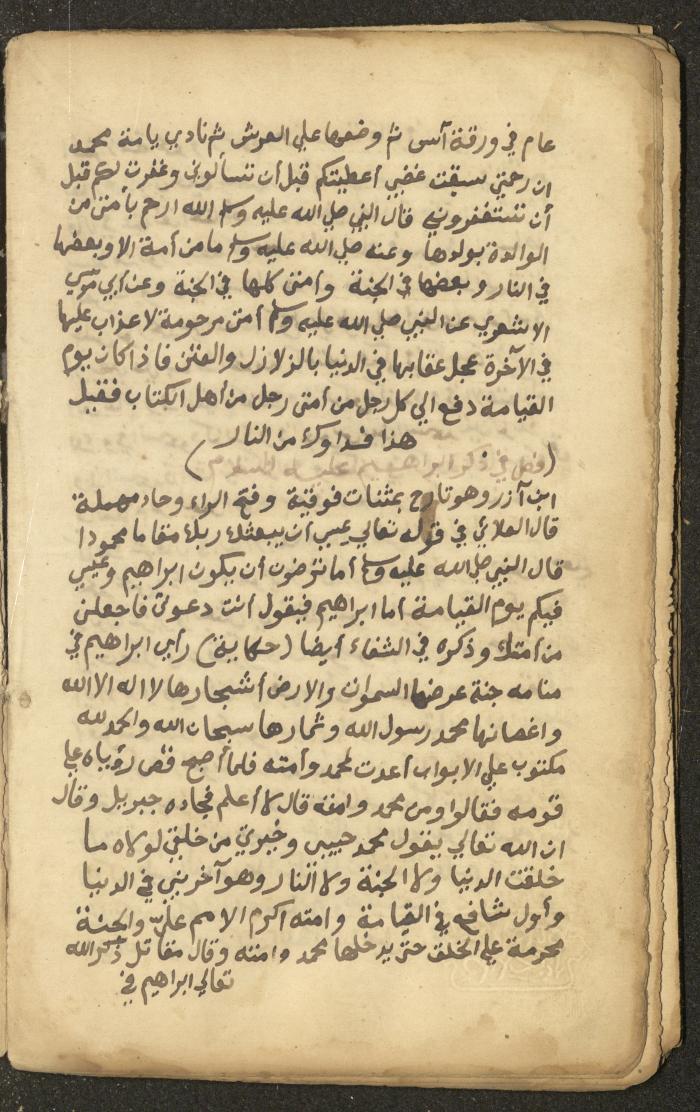 عام في ورقة آس ثم وضعها علي العرش ثم نادي يا امة محمد
ان رحمتي سبقت غضبي أعطيتكم قبل أن تسألوني وغفرت لكم قبل
أن تستغفروني قال النبي صلي الله عليه وسلم الله ارحم بأمتي من
الوالدة بولدها وعنه صلي الله عليه وسلم ما من أمة الا وبعضها
في النار وبعضها في الجنة وأمتي كلها في الجنة وعن أبي موسي
الاشعري عن النبي صلي الله عليه وسلم أمتي مرحومة لا عذاب عليها
في الآخرة عجل عقابها في الدنيا بالزلازل والفتن فاذا كان يوم
القيامة دفع الي كل رجل من أمتي رجل من أهل الكتاب فقيل
هذا فداؤك من النار
(فصل في ذكر ابراهيم عليه السلام)
ابن آزر وهو تارح بمثنات فوقية وفتح الراء وحاء مهملة
قال العلائي في قوله تعالي عسي أن يبعثك ربك مقاما محمودا
قال النبي صلي الله عليه وسلم أما ترضون أن يكون ابراهيم وعيسي
فيكم يوم القيامة أما ابراهيم فيقول أنت دعوتي فاجعلني
من أمتك وذكره في الشفاء أيضا (حكاية) رأي ابراهيم في
منامه جنة عرضها السموات والارض أشجارها لا اله الا الله
واغصانها محمد رسول الله وثمارها سبحان الله والحمد لله
مكتوب علي الابواب أعدت لمحمد وأمته فلما أصبح قص رؤياه علي
قومه فقالوا ومن محمد وامته قال لا أعلم فجاءه جبريل وقال
ان الله تعالي يقول محمد حبيبي وخيرتي من خلقي لولاه ما
خلقت الدنيا ولا الجنة ولا النار وهو آخر نبي في الدنيا
وأول شافع في القيامة وامته اكرم الامم علي والجنة
محرمة علي الخلق حتي يدخلها محمد وامته وقال مقاتل ذكر الله
تعالي ابراهيم في